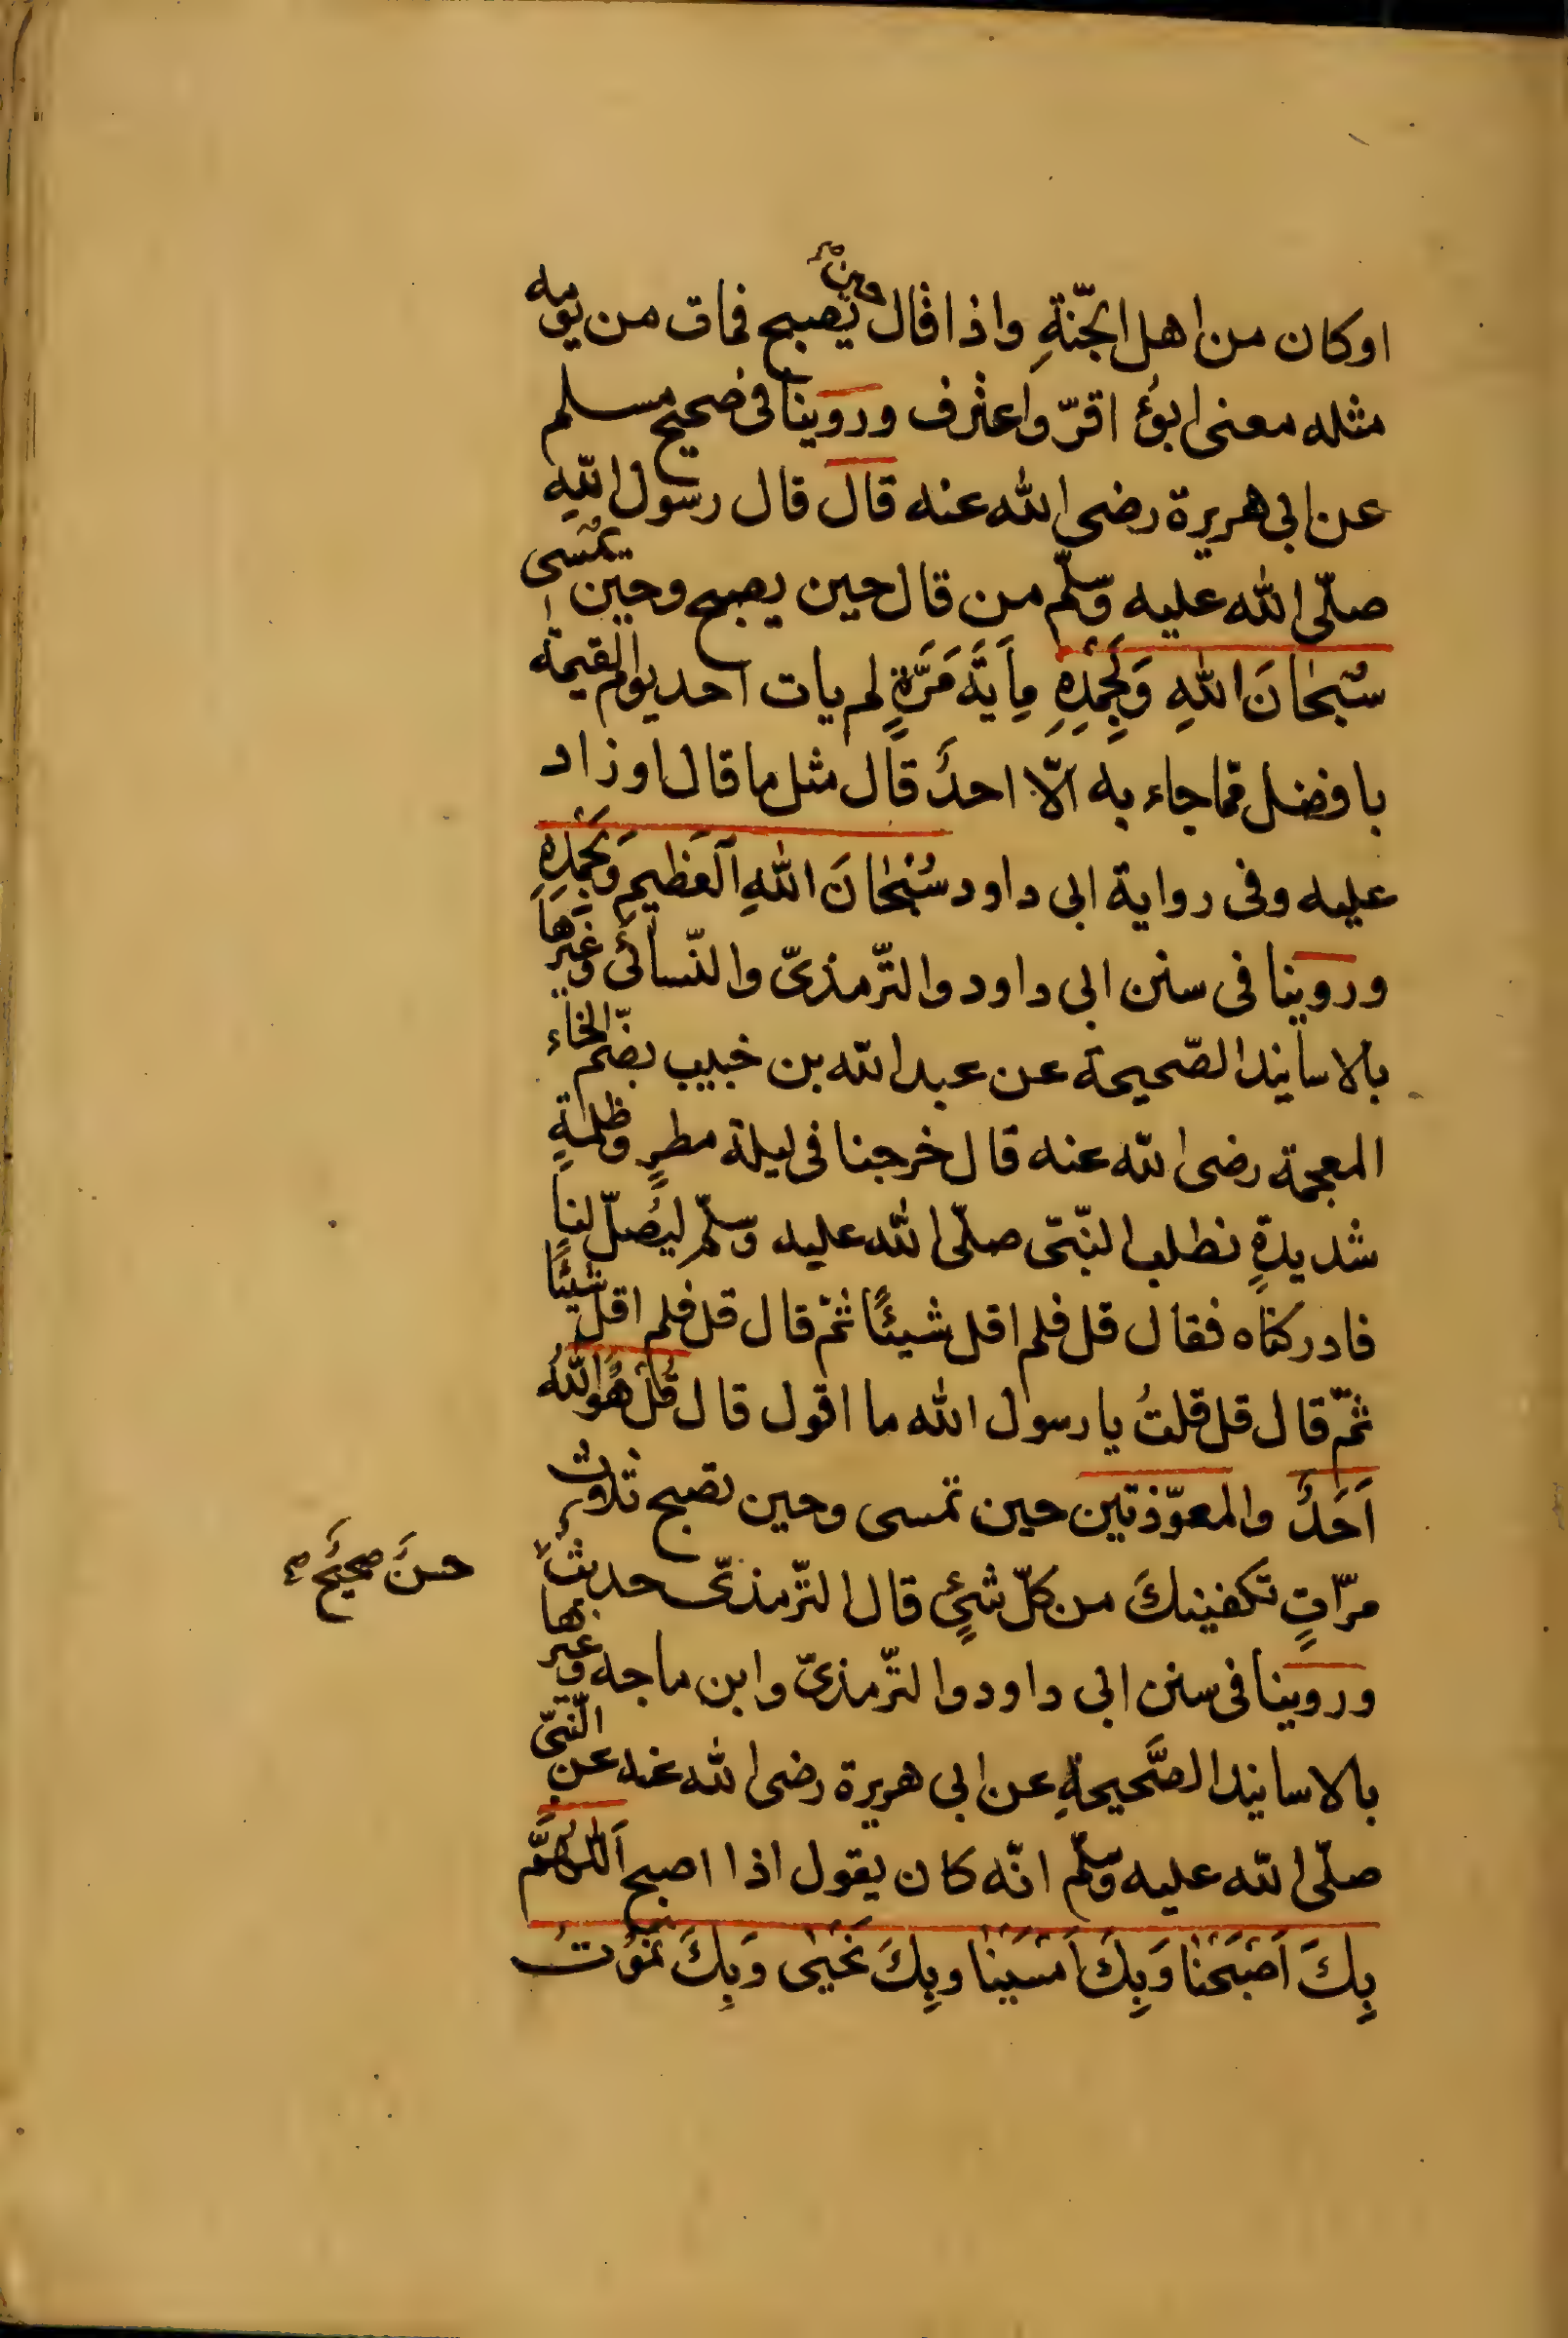 او كان من اهل الجّنةِ واذا قال حين يصبح فمات من يومه
مثله معنى ابؤ اقرّ واعترف وروينا فى صحيح مسلم
عن ابى هريرة رضى الله عنه قال قال رسول اللّهِ
صلّى الله عليه وسلّم من قال حين يصبح وحين يمسى
سُبْحَانَ اللهِ وَبِحَمْدِهِ مِاَيَةَ مَرَّةٍ لم يات احد يوم القيمة
بافضل ممّا جاء به الّا احدٌ قال مثل ما قال او زاد
عليه وفى رواية ابى داود سُبْحَانَ اللهِ اَلْعَظِيمِ وَبِحَمْدِهِ
وروينا فى سنن ابى داود والتّرمذىّ والنّسائى وغيرها
بالاسانيد الصّحيحة عن عبد الله بن خبيب بضّم الخاء
المعجمة رضى الله عنه قال خرجنا فى ليلة مطرٍ وظلمةٍ
شديدةٍ نطلب النّبّى صلّى الله عليه وسلّم ليُصلّ لنا
فادركناه فقال قل فلم اقل شيئًا ثمّ قال قل فلم اقل شيئًا
ثمّ قال قل قلتُ يا رسول الله ما اقول قال قُلْ هُوَ اللّهُ
اَحَدٌ والمعوّذتين حين تمسى وحين تصبح ثلاث
مرّاتٍ تكفينك من كلّ شئٍ قال التّرمذىّ حديثٌ
حسنٌ صحيحٌ صح
وروينا فى سنن ابى داود والتّرمذىّ وابن ماجه وغيرها
بالاسانيد الصَّحيحةِ عن ابى هريرة رضى الله عنه عن النّبّى
صلّى الله عليه وسلّم انّه كان يقول اذا اصبح اَللّهُمَّ
بِكَ اَصْبَحْنَا وَبِكَ اَمْسَيْنَا وبِكَ نَحْيٰى وَبِكَ نَمُوْتُ